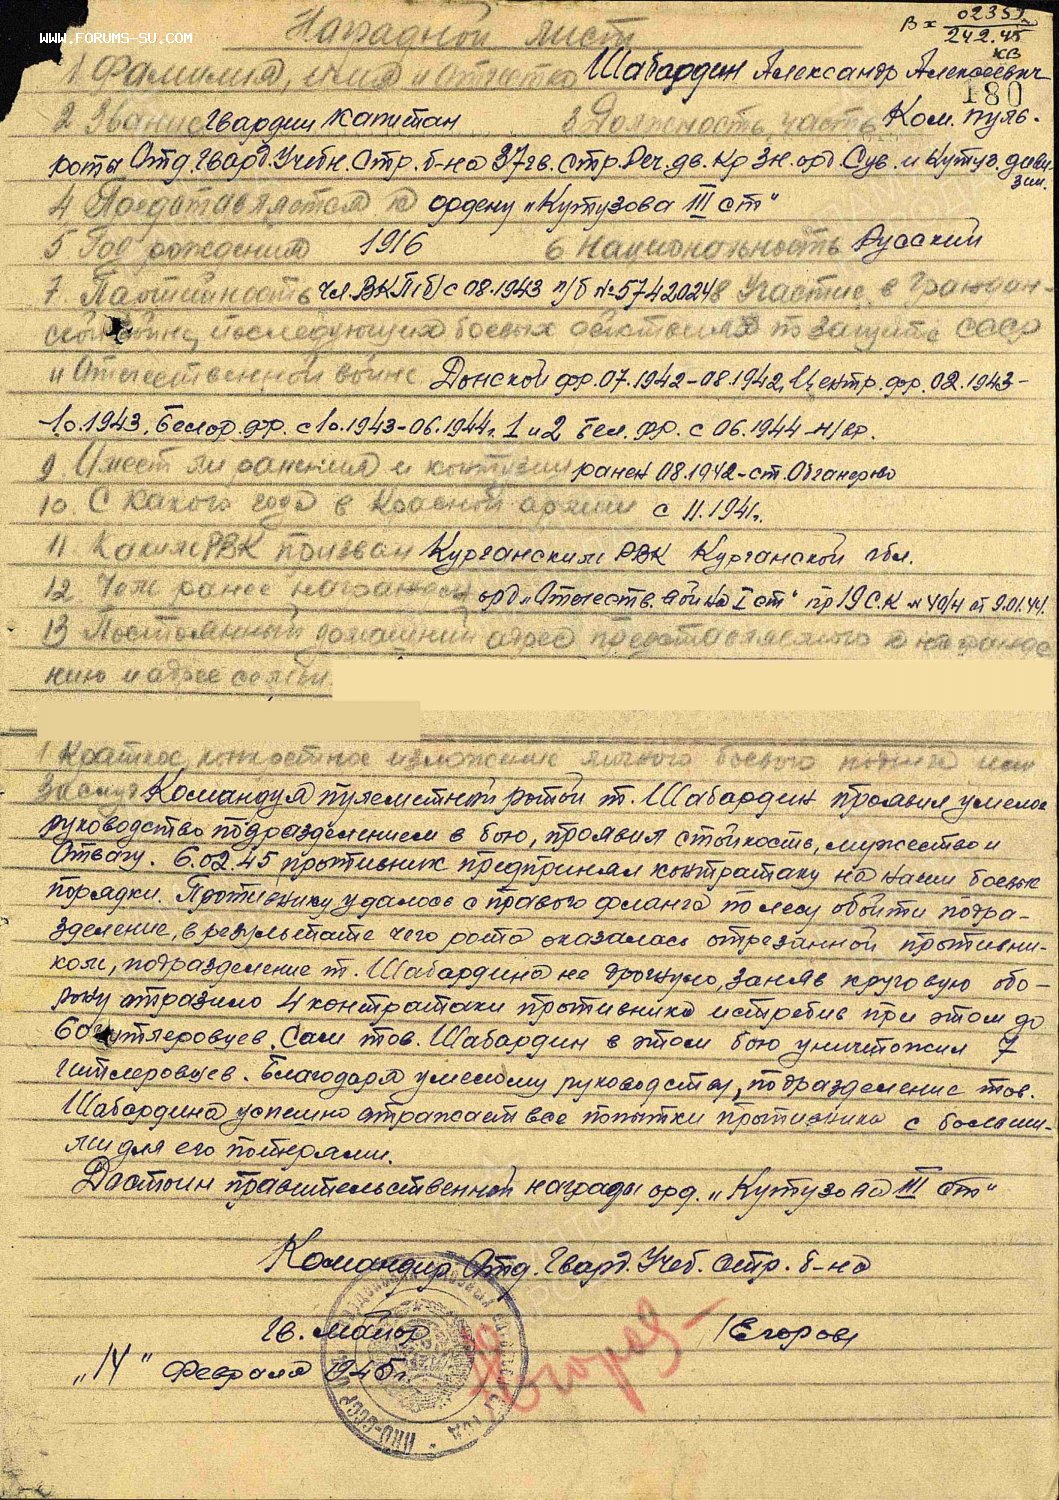 www.forums-su.com
Наградной лист
Вх 02359
24.2.45
КВ
1 Фамилия, имя и отчество Шабардин Александр Алексеевич
180
2 Звание Гвардии капитан 3 Должность, часть Ком. пуль.
роты Отд. Гвард. Учебн. Стр. б-на 37 гв. стр. Реч. дв. Кр Зн. орд. Сув. и Кутуз. диви-
зии.
4 Представляется к ордену „Кутузова III ст"
5 Год рождения 1916 6 Национальность Русский
7. Партийность чл. ВКП(б) с 08.1943 п/б №5742024 8 Участие в граждан-
ской войне, последующих боевых действиях по защите СССР
и Отечественной войне Донской фр. 07.1942-08.1942, Центр. фр. 02.1943-
10.1943. Белор. фр. с 10.1943-06.1944г. 1 и 2 Бел. фр. с 06.1944-н/вр.
9. Имеет ли ранения и контузии ранен 08.1942-ст. Абганерово
10. С какого года в Красной армии с 11.1941г.
11. Каким РВК призван Курганским РВК Курганской обл.
12 Чем ранее награжден орд „Отечеств. война I ст" пр 19 С.К №40/н от 9.01.44г.
13 Постоянный домашний адрес представляемого к награжде
нию и адрес семьи.
1 Краткое, конкретное изложение личного боевого подвига или
заслуг Командуя пулеметной ротой т. Шабардин проявил умелое
руководство подразделением в бою, проявил стойкость, мужество и
отвагу. 6.02.45 противник предпринял контратаку на наши боевые
порядки. Противнику удалось с правого фланга по лесу обойти подра-
зделение, в результате чего рота оказалась отрезанной противни-
ком, подразделение т. Шабардина не дрогнуло, заняв круговую обо-
рону отразило 4 контратаки противника истребив при этом до
60 гитлеровцев. Сам тов. Шабардин в этом бою уничтожил 7
гитлеровцев. Благодаря умелому руководству, подразделение тов.
Шабардина успешно отражает все попытки противника с больши-
ми для его потерями.
Достоин правительственной награды орд. „Кутузова III ст"
Командир Отд. Гвард. Учеб. стр. б-на
Гв. майор /Егоров/
Егоров
„14" февраля 1945г.
НКО-СССР